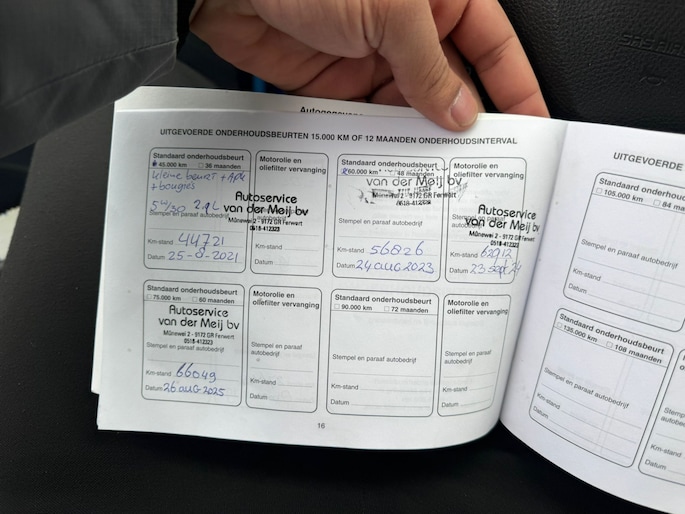 UITGEVOERDE ONDERHOUDSBEURTEN 15.000 KM OF 12 MAANDEN ONDERHOUDSINTERVAL
Standaard onderhoudsbeurt
45.000 km 36 maanden
kleine beurt + APK
+ bougies
5W/30 2.9L
Autoservice
van der Meij bv
Mûnewei 2 - 9172 GR Ferwert
0518-412323
Stempel en paraaf autobedrijf
Km-stand 44721
Datum 25-8-2021
Motorolie en
oliefilter vervanging
Km-stand
Datum
Standaard onderhoudsbeurt
60.000 km 48 maanden
van der Meij bv
Mûnewei 2 - 9172 GR Ferwert
0518-412323
Stempel en paraaf autobedrijf
Km-stand 56826
Datum 24 aug 2023
Motorolie en
oliefilter vervanging
Autoservice
van der Meij bv
Mûnewei 2 - 9172 GR Ferwert
0518-412323
Stempel en paraaf
autobedrijf
Km-stand 62912
Datum 23 sept 24
Standaard onderhoudsbeurt
75.000 km 60 maanden
Autoservice
van der Meij bv
Mûnewei 2 - 9172 GR Ferwert
0518-412323
Stempel en paraaf autobedrijf
Km-stand 66049
Datum 26 aug 2025
Motorolie en
oliefilter vervanging
Stempel en paraaf
autobedrijf
Km-stand
Datum
Standaard onderhoudsbeurt
90.000 km 72 maanden
Stempel en paraaf autobedrijf
Km-stand
Datum
Motorolie en
oliefilter vervanging
Stempel en paraaf
autobedrijf
Km-stand
Datum
16
UITGEVOERDE
Standaard
105.000 km 84
Stempel en paraaf autobedrijf
Km-stand
Datum
Standaard onderhoudsbeurt
135.000 km 108 maanden
Stempel en paraaf autobedrijf
Km-stand
Datum